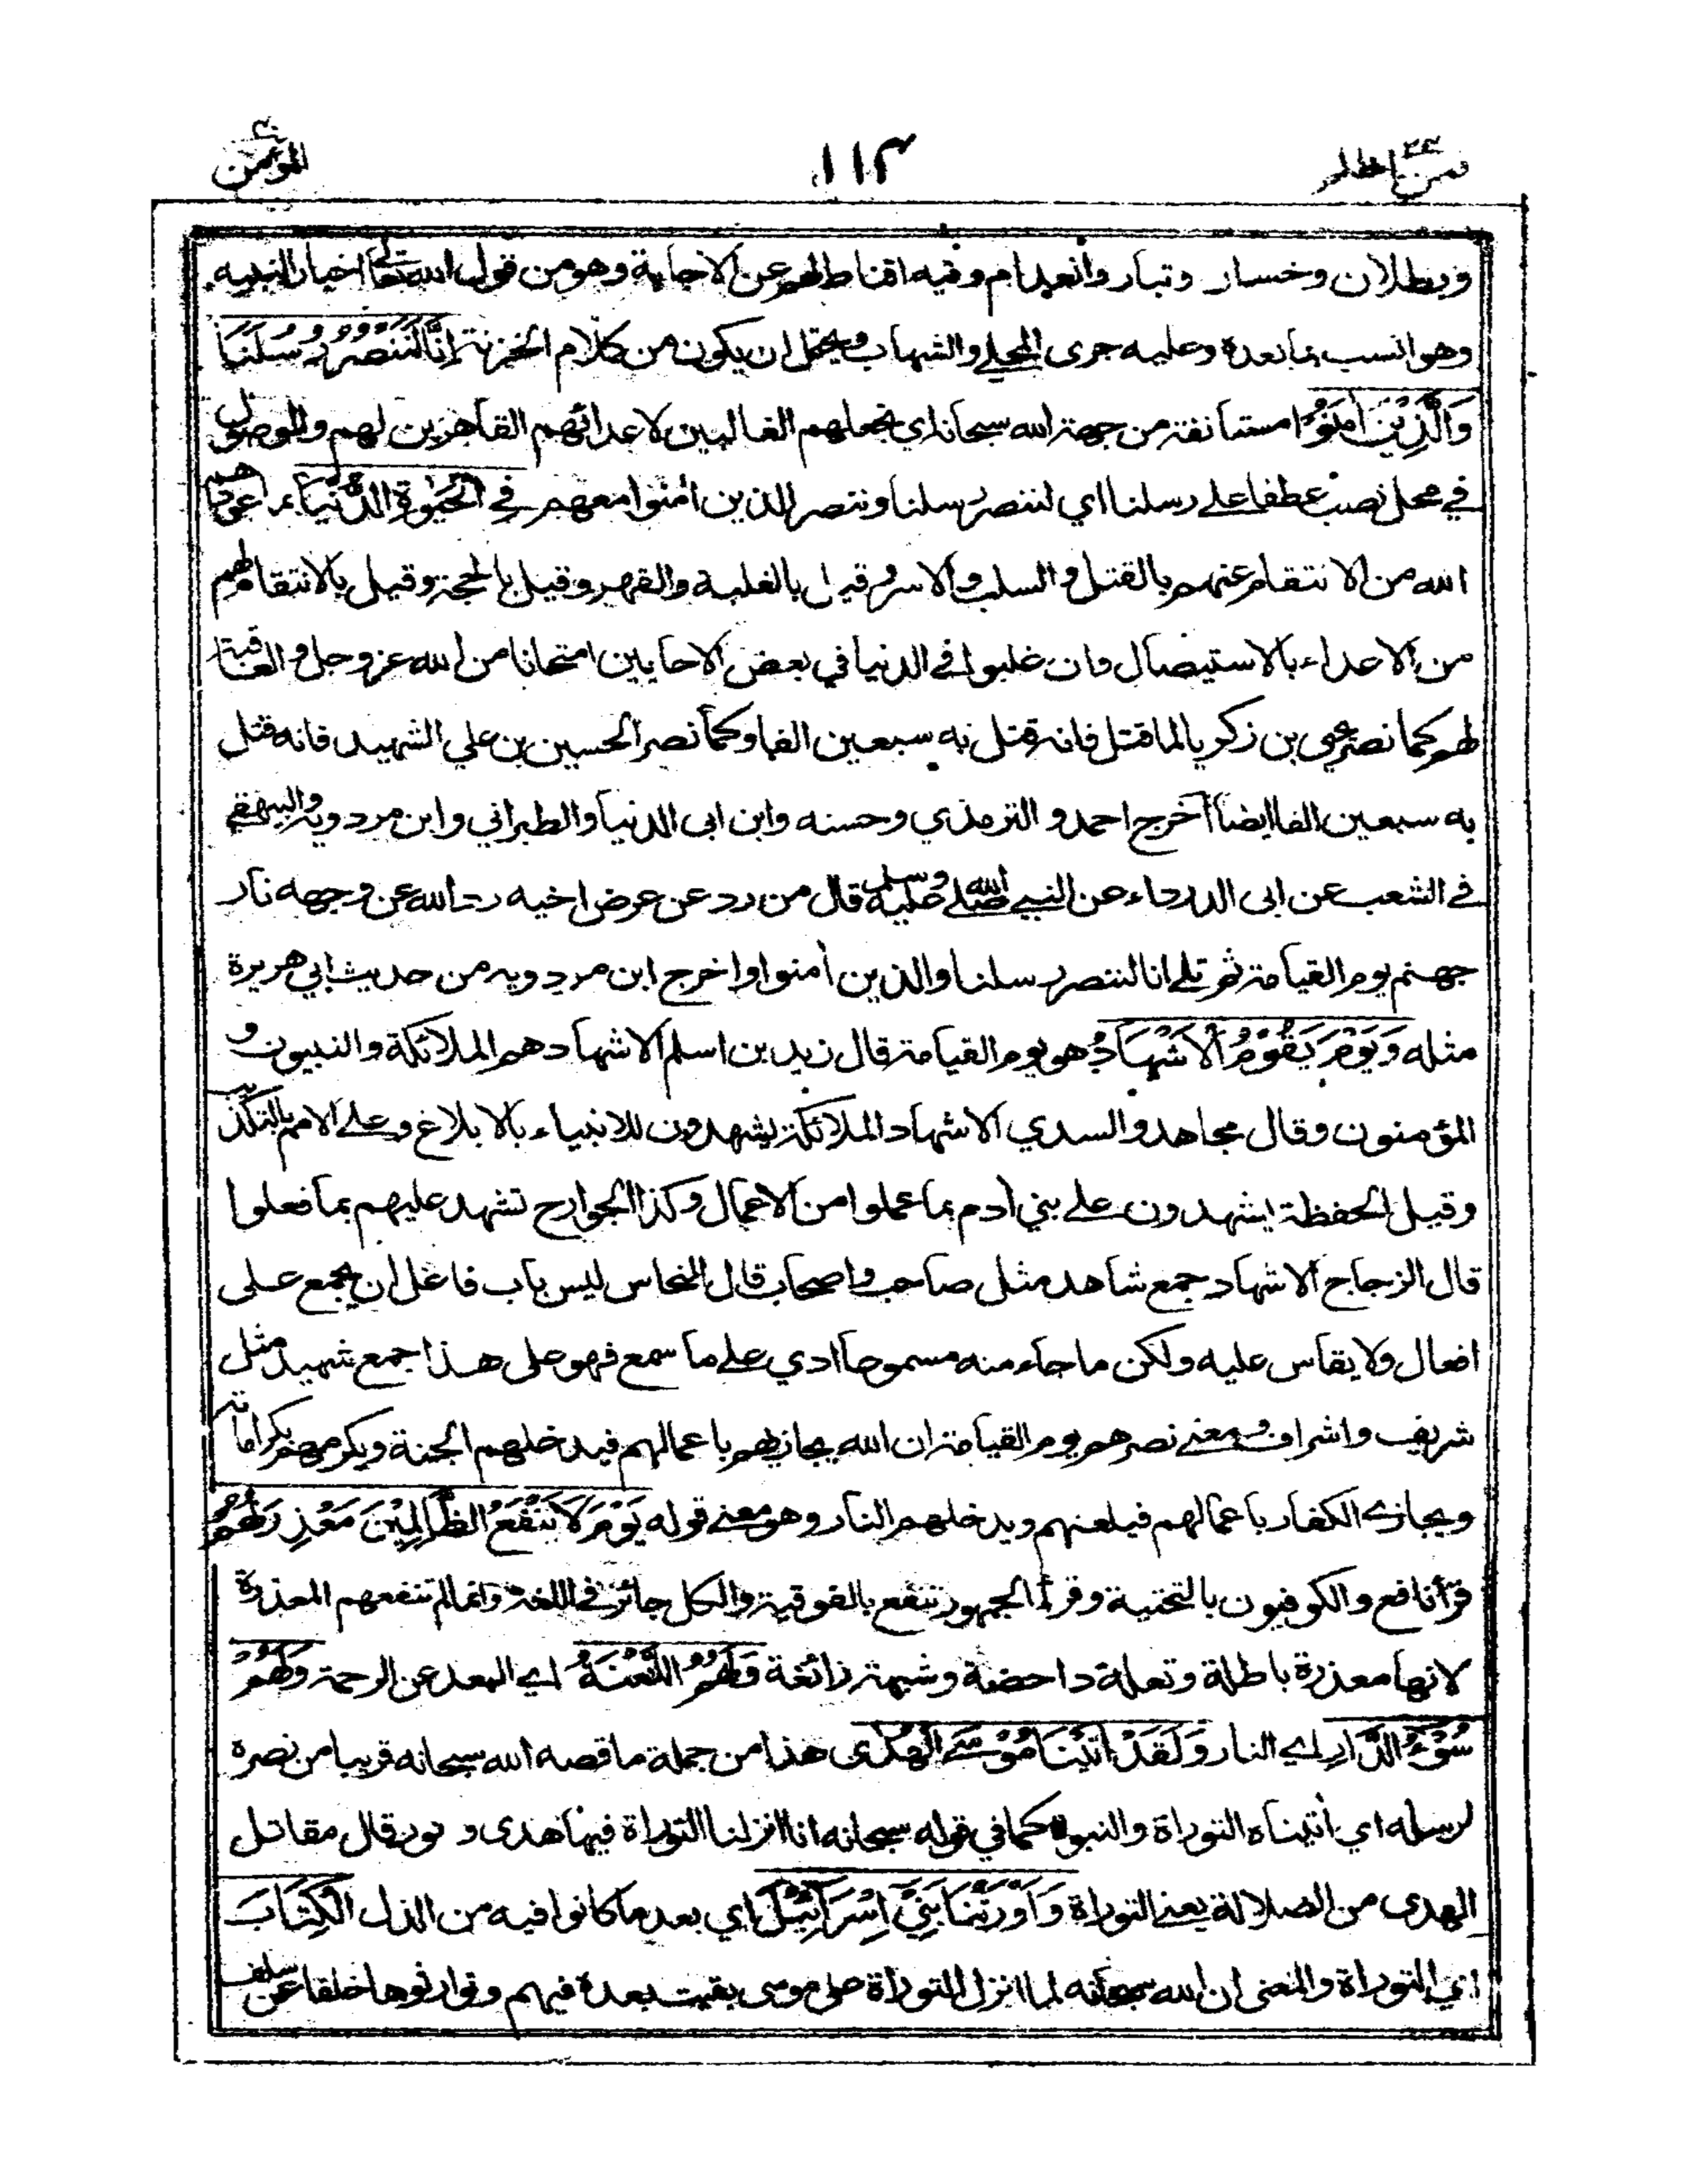 فمن اظلم ٢٤
١١٣
المؤمن ٤٠
وبطلان وخسار وتبار وانعدام وفيه اقناط لهم عن الاجابة وهو من قول الله تعالى اخبارا لنبيه
وهو انسب بما بعده وعليه جرى المحلي والشهاب ويحتمل ان يكون من كلام الخزنة إِنَّا لَنَنْصُرُ رُسُلَنَا
وَالَّذِيْنَ اٰمَنُوْا مستانفة من جهة الله سبحانه اي نجعلهم الغالبين لاعدائهم القاهرين لهم والموصول
في محل نصب عطفا على رسلنا اي لننصر رسلنا وننصر الذين اٰمنوا معهم فِي الْحَيٰوةِ الدُّنْيَا بما عودهم
الله من الانتقام عنهم بالقتل والسلب والاسر وقيل بالغلبة والقهر وقيل بالحجة وقيل بالانتقام لهم
من الاعداء بالاستيصال وان غلبوا في الدنيا في بعض الاحايين امتحانا من الله عز وجل والعاقبة
لهم كما نصر يحيى بن زكريا لما قتل فانه قتل به سبعين الفا وكما نصر الحسين بن علي الشهيد فانه قتل
به سبعين الفا ايضا أخرج احمد و الترمذي وحسنه وابن ابى الدنيا والطبراني وابن مردويه والبيهقي
في الشعب عن ابى الدرداء عن النبي صلى الله عليه وسلم قال من رد عن عرض اخيه رد الله عن وجهه نار
جهنم يوم القيامة ثم تلى انا لننصر رسلنا والذين أمنوا واخرج ابن مردويه من حديث ابي هريرة
مثله وَيَوْمَ يَقُوْمُ الْاَشْهَادُ هو يوم القيامة قال زيد بن اسلم الاشهاد هم الملائكة والنبيون و
المؤمنون وقال مجاهد والسدي الاشهاد الملائكة يشهدون للانبياء بالابلاغ وعلى الامم بالتكذيب
وقيل الحفظة يشهدون على بني أدم بما عملوا من الاعمال وكذا الجوارح تشهد عليهم بما فعلوا
قال الزجاج الاشهاد جمع شاهد مثل صاحب واصحاب قال النحاس ليس باب فاعل ان يجمع على
افعال ولا يقاس عليه ولكن ما جاء منه مسموعا ادي على ما سمع فهو على هذا جمع شهيد مثل
شريف واشراف ومعنى نصرهم يوم القيامة ان الله يجازيهم باعمالهم فيدخلهم الجنة ويكرمهم بكراماته
ويجازي الكفار باعمالهم فيلعنهم ويدخلهم النار وهو معنى قوله يَوْمَ لَا تَنْفَعُ الظّٰلِمِيْنَ مَعْذِرَتُهُمْ
قرأ نافع والكوفيون بالتحتية وقرأ الجمهور تنفع بالفوقية والكل جائز في اللغة وانما لم تنفعهم المعذرة
لانها معذرة باطلة وتعلة داحضة وشبهة زائغة وَلَهُمُ اللَّعْنَةُ اي البعد عن الرحمة وَلَهُمْ
سُوْءُ الدَّارِ اي النار وَلَقَدْ اٰتَيْنَا مُوْسَى الْهُدٰى هذا من جملة ما قصه الله سبحانه قريبا من نصره
لرسله اي أتيناه التوراة والنبوة كما في قوله سبحانه انا انزلنا التوراة فيها هدى و نور قال مقاتل
الهدى من الضلالة يعني التوراة وَاَوْرَثْنَا بَنِيْٓ اِسْرَآئِيْلَ اي بعد ما كانوا فيه من الذل الْكِتَابَ
اي التوراة والمعنى ان الله سبحانه لما انزل التوراة على موسى بقيت بعده فيهم وتوارثوها خلفا عن سلف